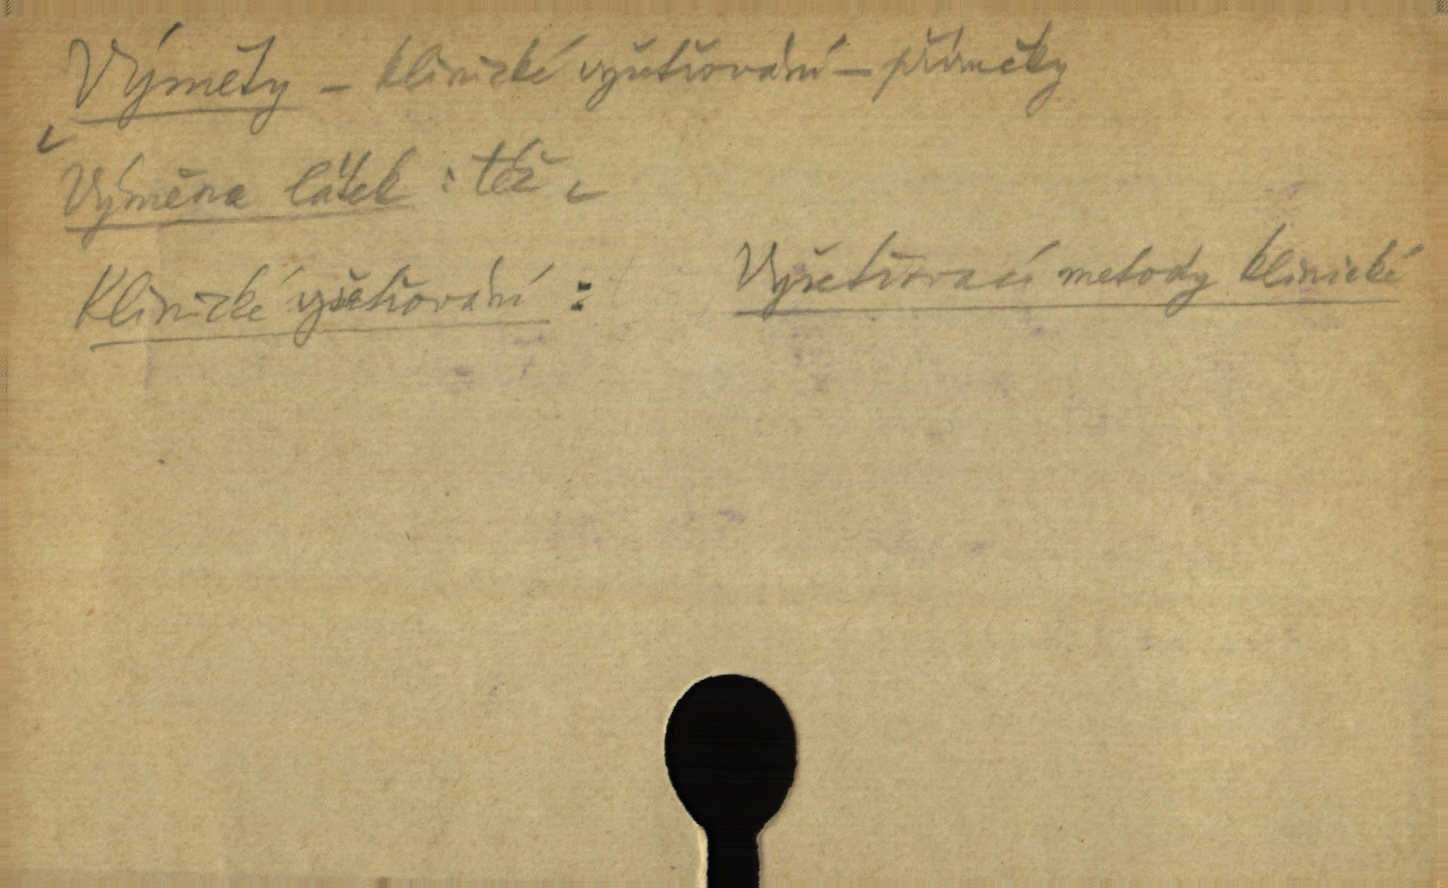 Výměty - klinické vyšetřování - příměky
Výměna látek : též
Klinické vyšetřování : Vyšetřovací metody klinické